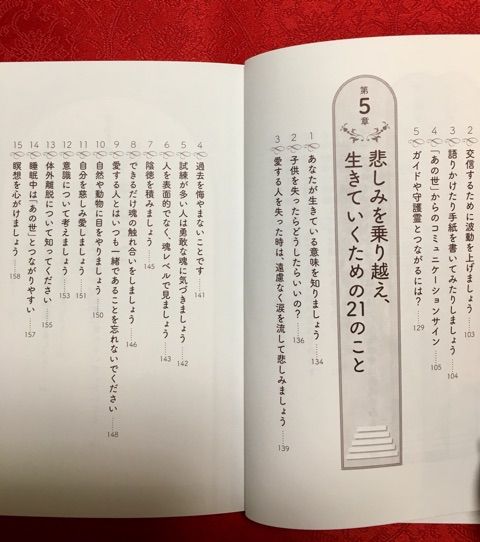 2 交信するために波動を上げましょう……103
3 語りかけたり手紙を書いてみたりしましょう……104
4 「あの世」からのコミュニケーションサイン……105
5 ガイドや守護霊とつながるには?……129
第5章
悲しみを乗り越え、
生きていくための21のこと
1 あなたが生きている意味を知りましょう……134
2 子供を失ったらどうしたらいいの?……136
3 愛する人を失った時は、遠慮なく涙を流して悲しみましょう……139
4 過去を悔やまないことです……141
5 試練が多い人は勇敢な魂に気づきましょう……142
6 人を表面的でなく、魂レベルで見ましょう……143
7 陰徳を積みましょう……145
8 できるだけ魂の触れ合いをしましょう……146
9 愛する人とはいつも一緒であることを忘れないでください……148
10 自然や動物に目をやりましょう……150
11 自分を慈しみ愛しましょう……151
12 意識について考えましょう……153
13 体外離脱について知ってください……155
14 睡眠中は「あの世」とつながりやすい……157
15 瞑想を心がけましょう……158